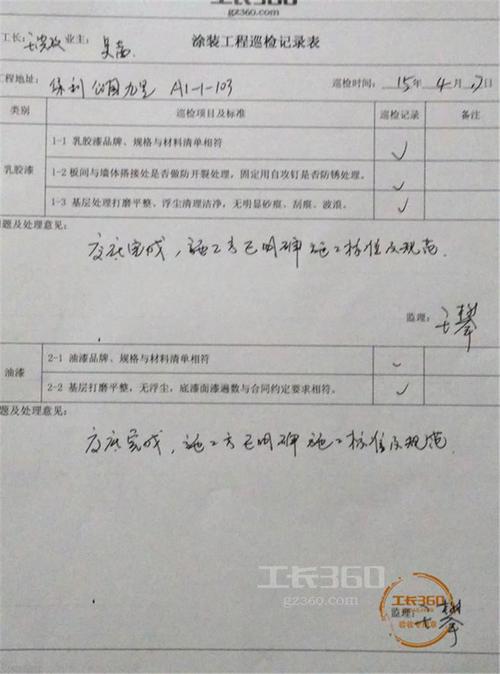 工长360
gz360.com
工长： 业主： 涂装工程巡检记录表
工程地址：保利公园九里 A1-1-103 巡检时间：15年4月17日
类别 巡检项目及标准 巡检记录 备注
1-1 乳胶漆品牌、规格与材料清单相符 ✓
乳胶漆 1-2 板间与墙体搭接处是否做防开裂处理，固定用自攻钉是否防锈处理。 ✓
1-3 基层处理打磨平整、浮尘清理洁净，无明显砂痕、刮痕、波浪。 ✓
问题及处理意见：
交底完成，施工方已明确施工标准及规范.
监理：王攀
2-1 油漆品牌、规格与材料清单相符 ✓
油漆 2-2 基层打磨平整，无浮尘，底漆面漆遍数与合同约定要求相符。 ✓
问题及处理意见：
交底完成，施工方已明确施工标准及规范.
工长360
gz360.com
工长360
监理：王攀